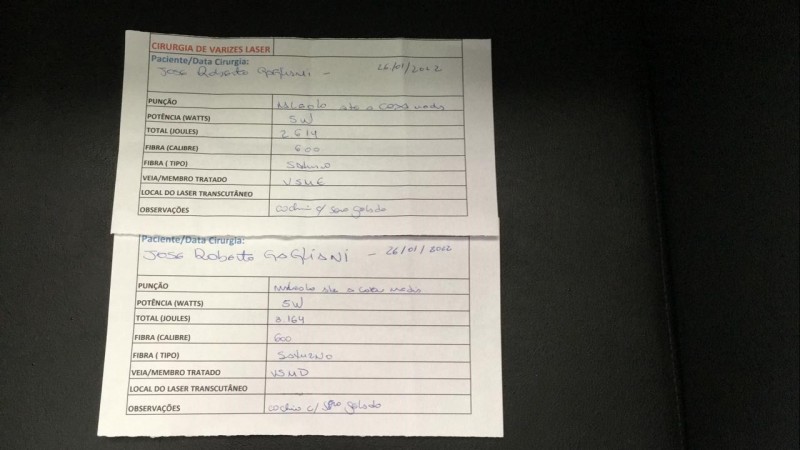 CIRURGIA DE VARIZES LASER
Paciente/Data Cirurgia:
Jose Roberto Gaglisni - 26/01/2022
PUNÇÃO Maleolo ate a coxa media
POTÊNCIA (WATTS) 5W
TOTAL (JOULES) 2.614
FIBRA (CALIBRE) 600
FIBRA ( TIPO)
VEIA/MEMBRO TRATADO VSME
LOCAL DO LASER TRANSCUTÂNEO
OBSERVAÇÕES c/ soro gelado
Paciente/Data Cirurgia:
Jose Roberto - 26/01/2022
PUNÇÃO Maleolo ate a coxa media
POTÊNCIA (WATTS) 5W
TOTAL (JOULES) 3.164
FIBRA (CALIBRE) 600
FIBRA ( TIPO)
VEIA/MEMBRO TRATADO VSMD
LOCAL DO LASER TRANSCUTÂNEO
OBSERVAÇÕES c/ soro gelado